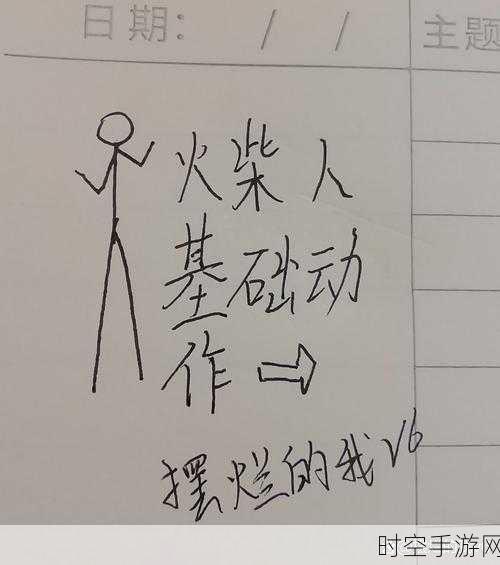 日期: / / 主题
火柴人
基础动
作⇨
摆烂的我V6
时空手游网